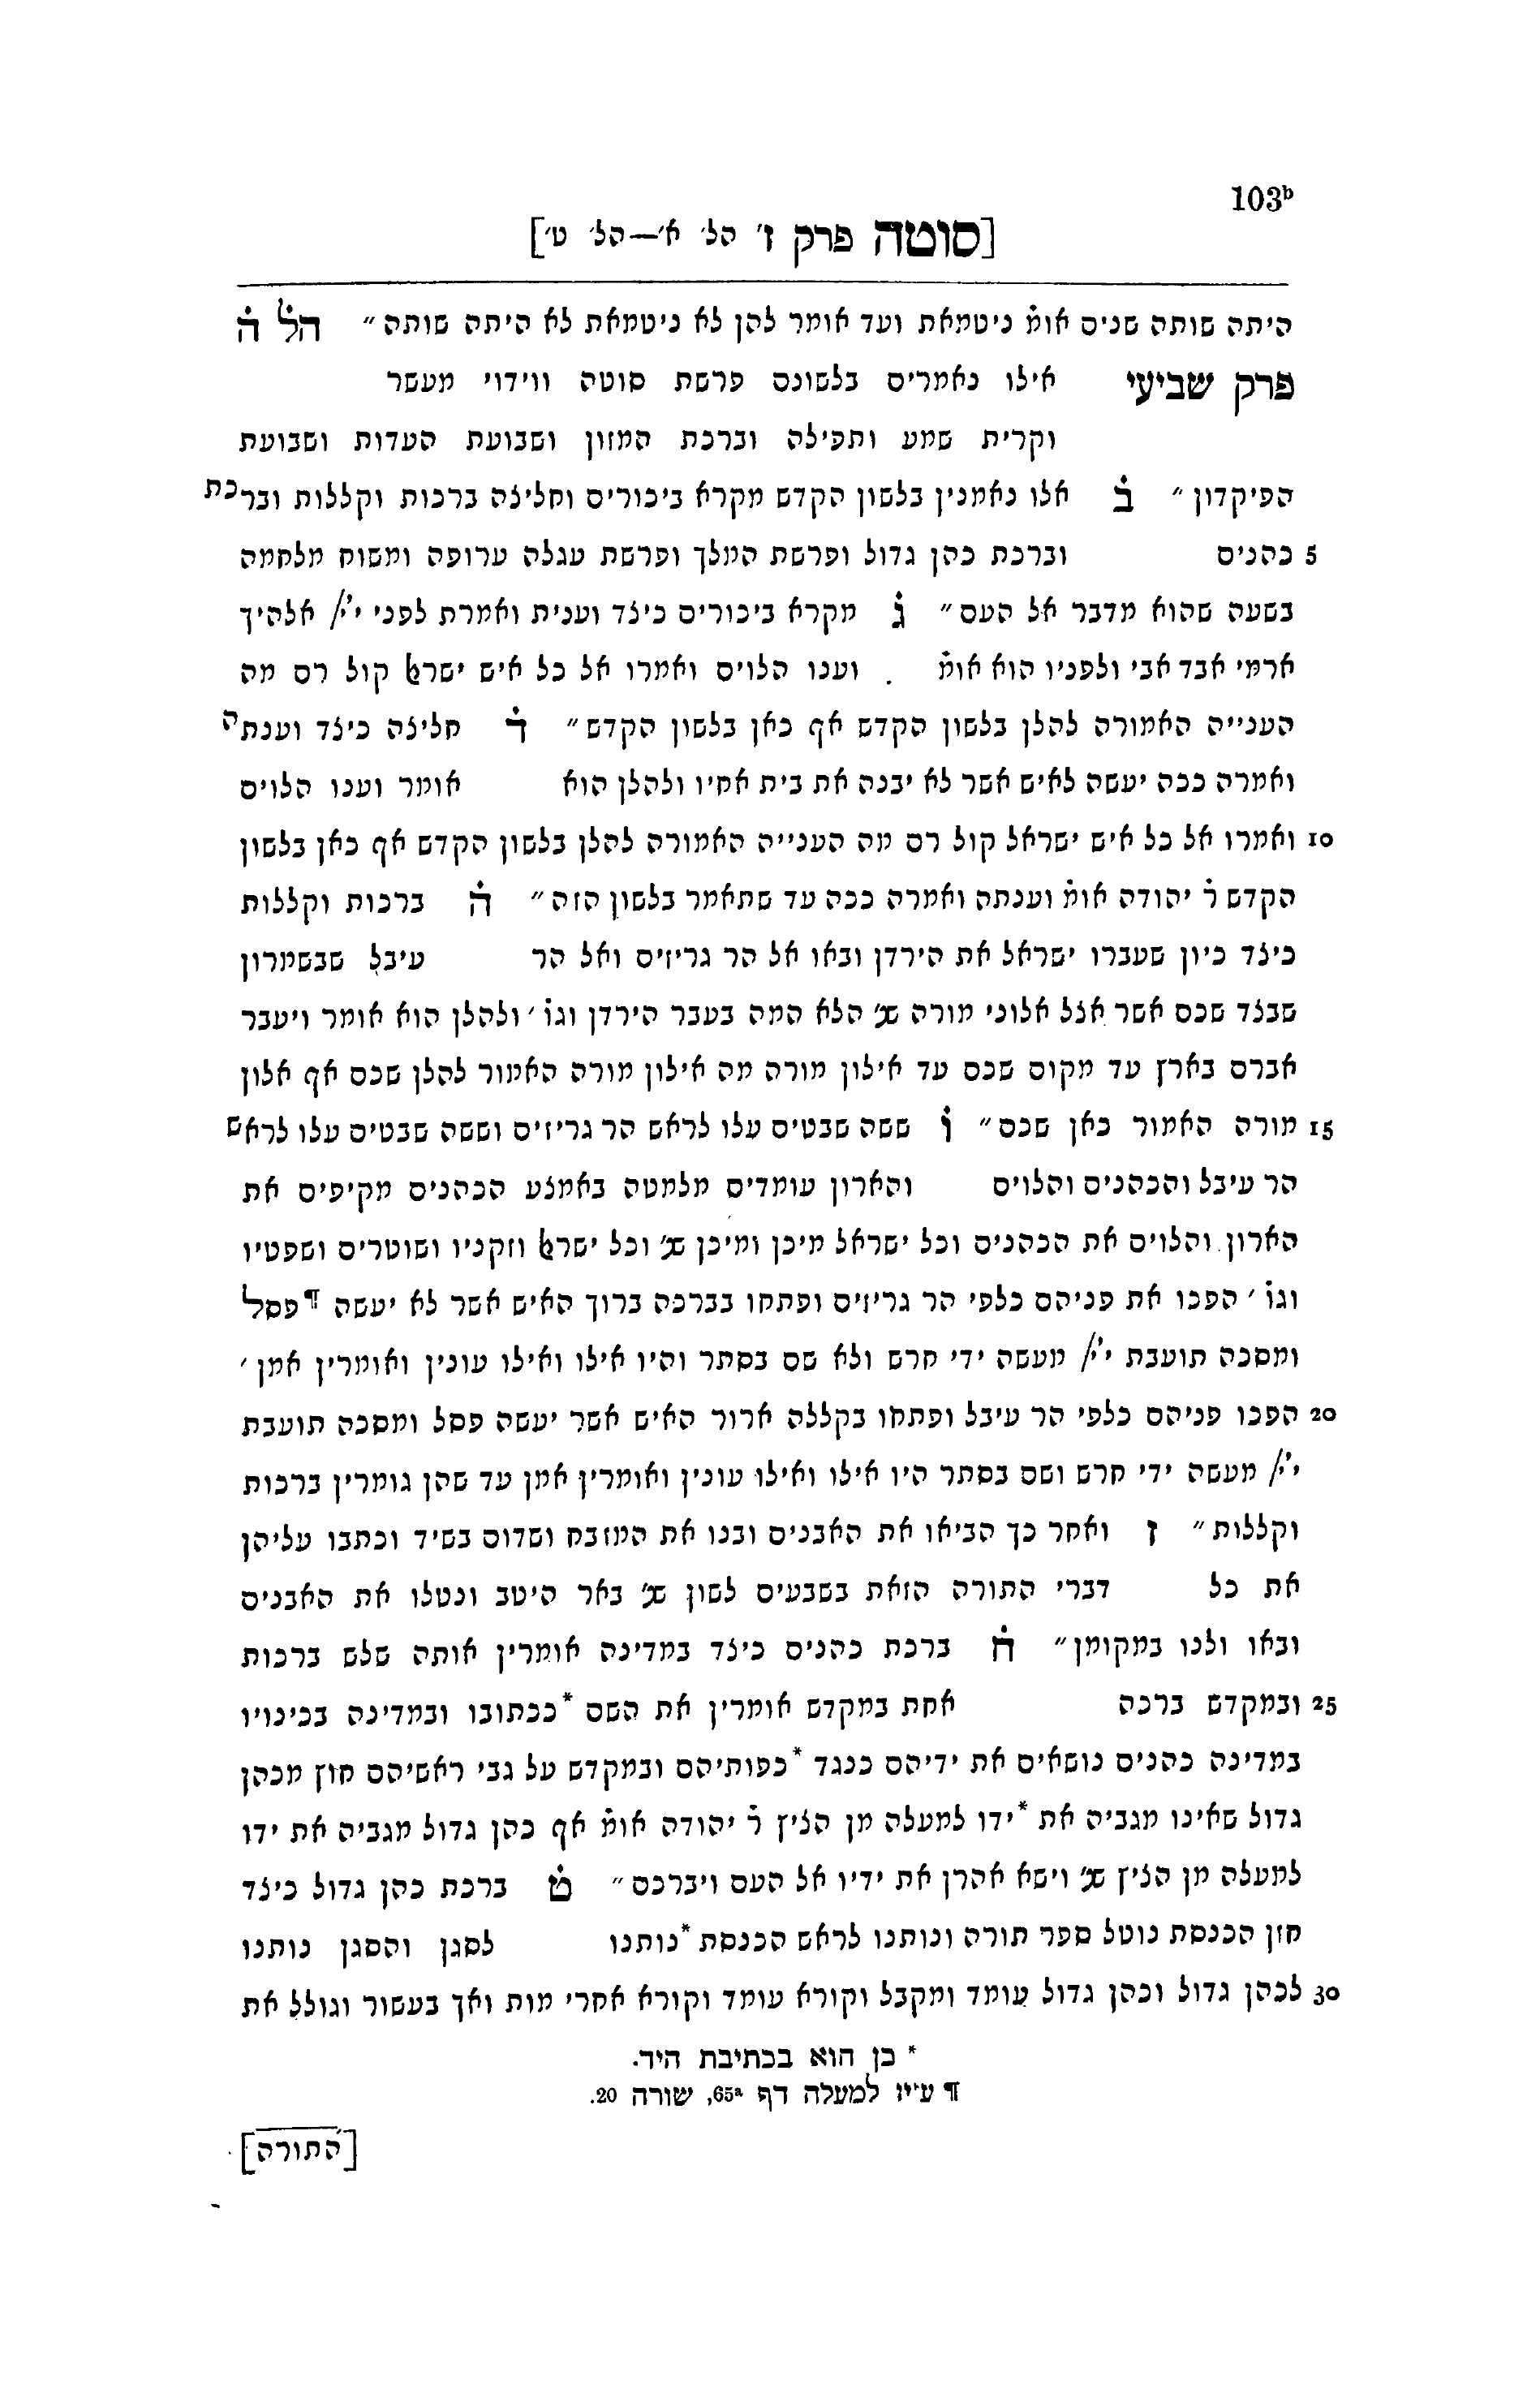 103b
[סוטה פרק ז׳ הל׳ א׳—הל׳ ט׳]
היתה שותה שנים אומ̇ ניטמאת ועד אומר להן לא ניטמאת לא היתה שותה״ הל̇ ה̇
פרק שביעי אילו נאמרים בלשונם פרשת סוטה ווידוי מעשר
וקרית שמע ותפילה וברכת המזון ושבועת העדות ושבועת
הפיקדון״ ב̇ אלו נאמנין בלשון הקדש מקרא ביכורים וחליצה ברכות וקללות וברכת
5 כהנים וברכת כהן גדול ופרשת המלך ופרשת עגלה ערופה ומשוח מלחמה
בשעה שהוא מדבר אל העם״ ג̇ מקרא ביכורים כיצד וענית ואמרת לפני י׳י/ אלהיך
ארמי אבד אבי ולפניו הוא אומ̇ . וענו הלוים ואמרו אל כל איש ישרﭏ קול רם מה
הענייה האמורה להלן בלשון הקדש אף כאן בלשון הקדש״ ד̇ חליצה כיצד וענתה
ואמרה ככה יעשה לאיש אשר לא יבנה את בית אחיו ולהלן הוא אומר וענו הלוים
10 ואמרו אל כל איש ישראל קול רם מה הענייה האמורה להלן בלשון הקדש אף כאן בלשון
הקדש ר̇ יהודה אומ̇ וענתה ואמרה ככה עד שתאמר בלשון הזה״ ה̇ ברכות וקללות
כיצד כיון שעברו ישראל את הירדן ובאו אל הר גריזים ואל הר עיבל שבשמרון
שבצד שכם אשר אצל אלוני מורה שנ׳ הלא המה בעבר הירדן וגו̇ ׳ ולהלן הוא אומר ויעבר
אברם בארץ עד מקום שכם עד אילון מורה מה אילון מורה האמור להלן שכם אף אלון
15 מורה האמור כאן שכם״ ו̇ ששה שבטים עלו לראש הר גריזים וששה שבטים עלו לראש
הר עיבל והכהנים והלוים והארון עומדים מלמטה באמצע הכהנים מקיפים את
הארון והלוים את הכהנים וכל ישראל מיכן ומיכן שנ׳ וכל ישרﭏ וזקניו ושוטרים ושפטיו
וגו̇ ׳ הפכו את פניהם כלפי הר גריזים ופתחו בברכה ברוך האיש אשר לא יעשה ¶פסל
ומסכה תועבת י׳י/ מעשה ידי חרש ולא שם בסתר והיו אילו ואילו עונין ואומרין אמן ׳
20 הפכו פניהם כלפי הר עיבל ופתחו בקללה ארור האיש אשר יעשה פסל ומסכה תועבת
י׳י/ מעשה ידי חרש ושם בסתר היו אילו ואילו עונין ואומרין אמן עד שהן גומרין ברכות
וקללות״ ז ואחר כך הביאו את האבנים ובנו את המזבח ושדום בשיד וכתבו עליהן
את כל דברי התורה הזאת בשבעים לשון שנ׳ באר היטב ונטלו את האבנים
ובאו ולנו במקומן״ ח̇ ברכת כהנים כיצד במדינה אומרין אותה שלש ברכות
25 ובמקדש ברכה אחת במקדש אומרין את השם *ככתובו ובמדינה בכינויו
במדינה כהנים נושאים את ידיהם כנגד *כפותיהם ובמקדש על גבי ראשיהם חוץ מכהן
גדול שאינו מגביה את *ידו למעלה מן הציץ ר̇ יהודה אומ̇ אף כהן גדול מגביה את ידו
למעלה מן הציץ שנ׳ וישא אהרן את ידיו אל העם ויברכם״ ט̇ ברכת כהן גדול כיצד
חזן הכנסת נוטל ספר תורה ונותנו לראש הכנסת *נותנו לסגן והסגן נותנו
30 לכהן גדול וכהן גדול עומד ומקבל וקורא עומד וקורא אחרי מות ואך בעשור וגולל את
* כן הוא בכתיבת היד.
¶ עיין למעלה דף 65a, שורה 20.
[התורה]